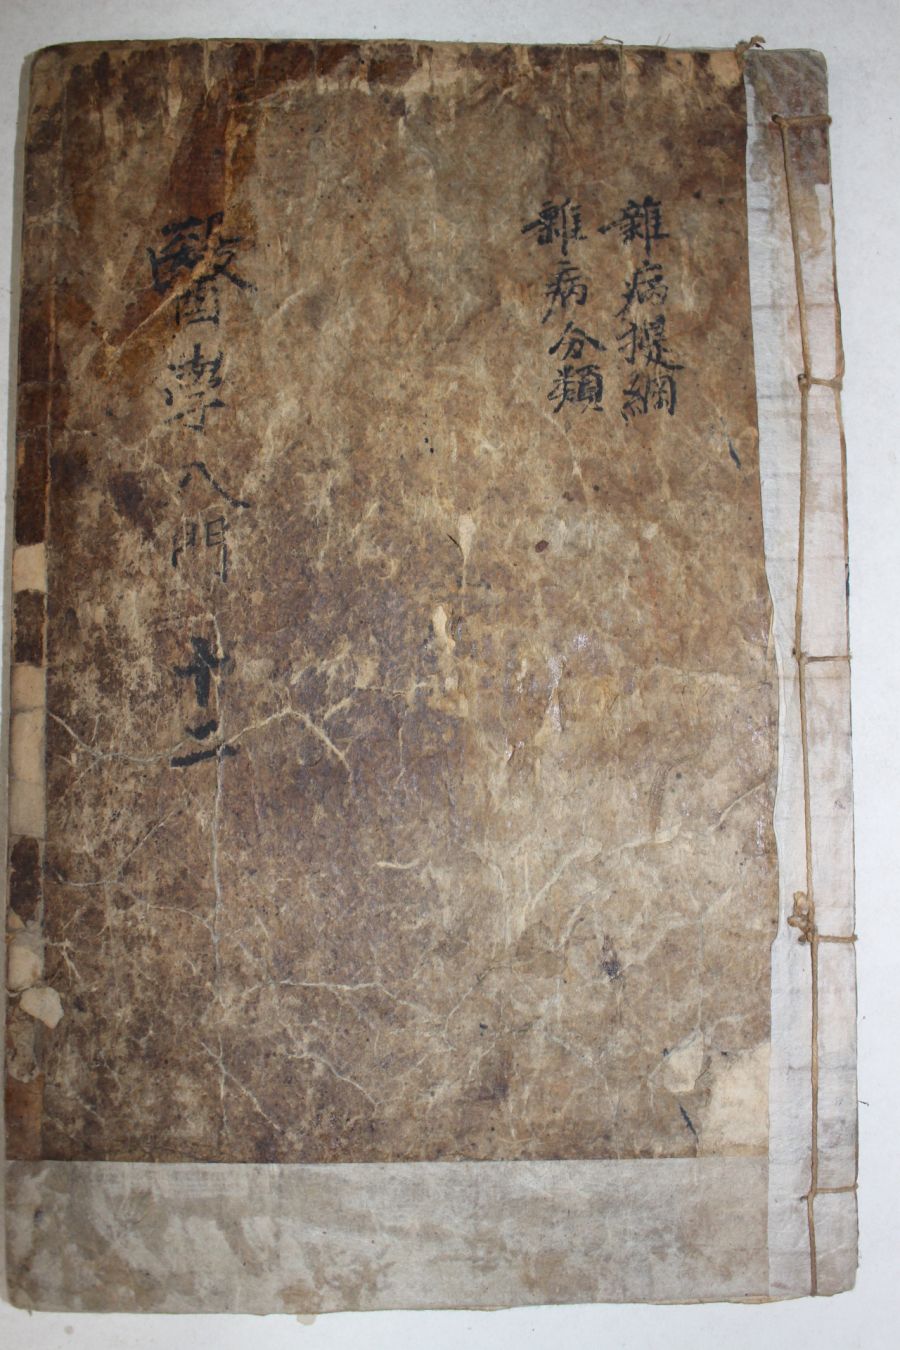 雜病提綱
雜病分類
醫學入門 十二